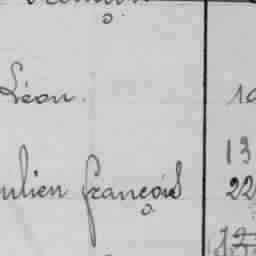 Léon. 10
13
ulien françois 22